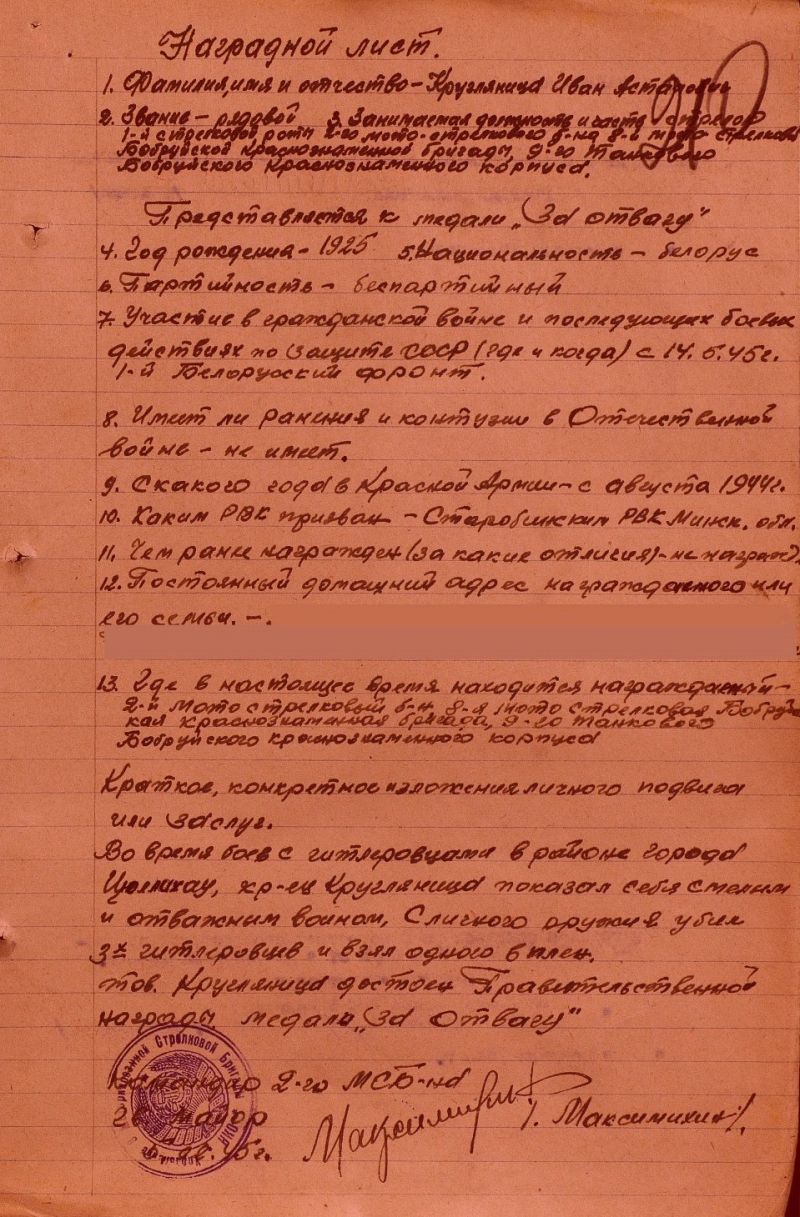 Наградной лист.
1. Фамилия, имя и отчество – Кругляница Иван
2. Звание – рядовой 3. Занимаемая должность и часть стрелок
1-й стрелковой роты 2-го мото-стрелкового б-на 8-й мото стрелковой
Бобруйской Краснознаменной бригады, 9-го Танкового
Бобруйского Краснознаменного корпуса.
Представляется к медали „За отвагу"
4. Год рождения – 1925 5. Национальность – белорус
6. Партийность – беспартийный
7. Участие в гражданской войне и последующих боевых
действиях по защите СССР (где и когда) с 14. 45г.
1-й Белорусский фронт.
8. Имеет ли ранения и контузии в Отечественной
войне – не имеет.
9. С какого года в Красной Армии – с августа 1944г.
10. Каким РВК призван – Старобинским РВК Минск. обл.
11. Чем ранее награжден (за какие отличия) – не награжд.
12. Постоянный домашний адрес награждаемого или
его семьи. –.
13. Где в настоящее время находится награждаемый –
2-й мото стрелковый б-н, 8-я мото стрелковая Бобруйс-
кая краснознаменная бригада, 9-го танкового
Бобруйского краснознаменного корпуса
Краткое, конкретное изложения личного подвига
или заслуг.
Во время боев с гитлеровцами в районе города
Цюллихау, кр-ец Кругляница показал себя смелым
и отважным воином, С личного оружия убил
3х гитлеровцев и взял одного в плен.
тов. Кругляница достоен Правительственной
награды, медали „За Отвагу"
Командир 2-го МСБ-на
Гв. майор /Максимихин/.
45г.
Стрелковой Бригады